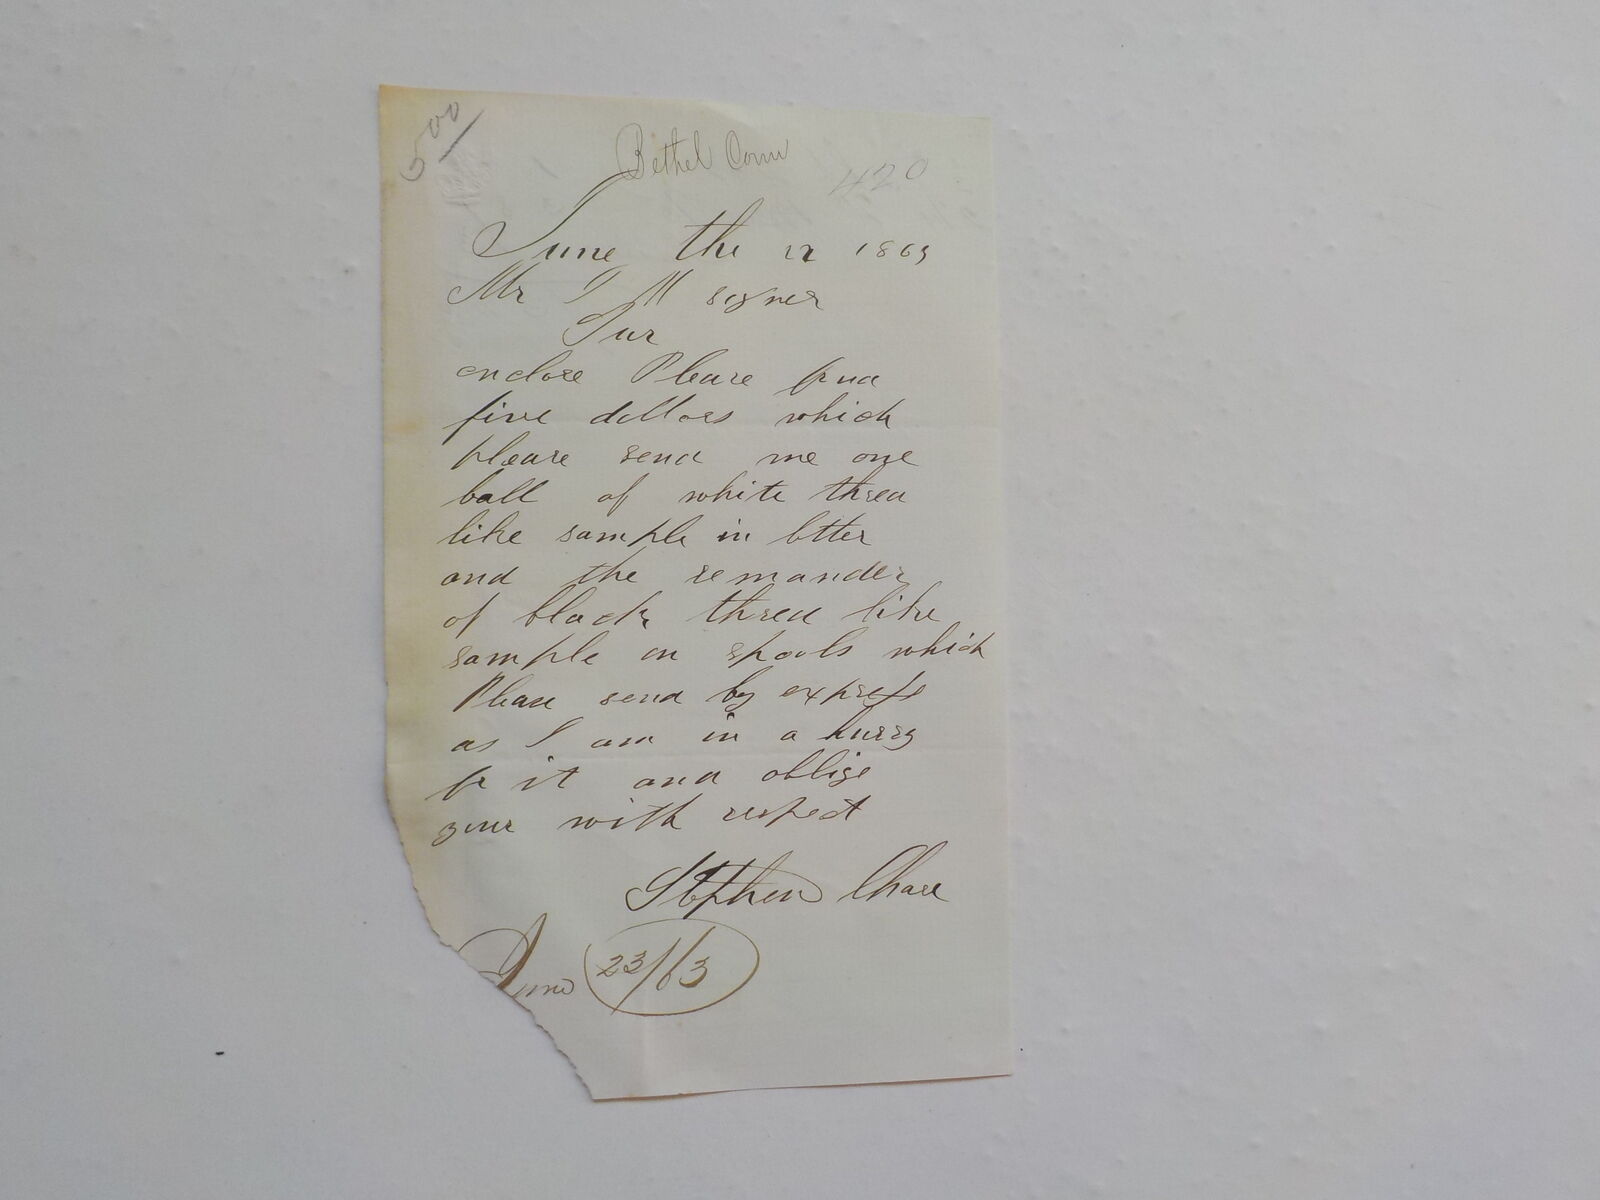 5 00
Bethel Conn
420
June the 22 1863
Mr I M signer
Sur
enclose Please find
five dollars which
please send me one
ball of white thred
like sample in letter
and the remander
of black thred like
sample on spools which
Please send by express
as I am in a hurry
for it and oblige
your with respect
Stephen Chase
June 23/63